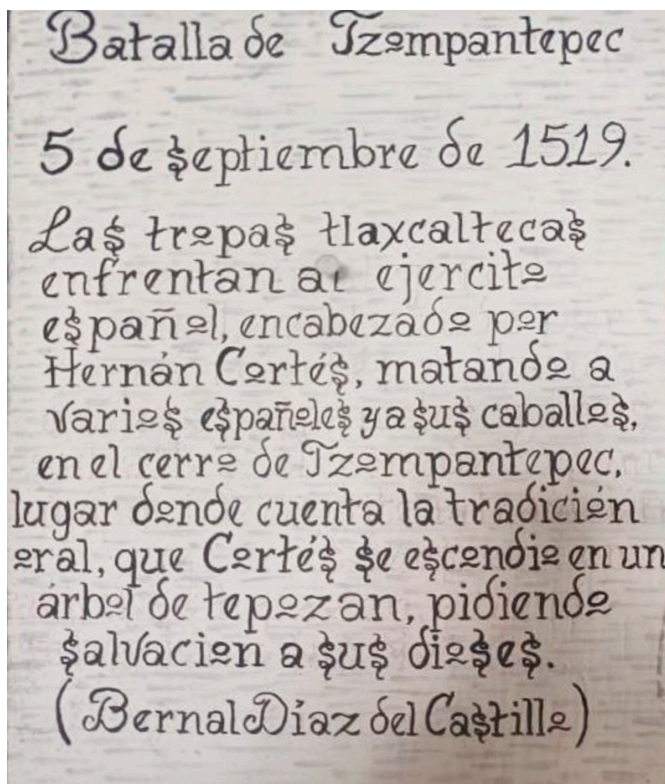 Batalla de Tzompantepec
5 de septiembre de 1519.
Las tropas tlaxcaltecas
enfrentan al ejercito
español, encabezado por
Hernán Cortés, matando a
varios españoles y a sus caballos,
en el cerro de Tzompantepec,
lugar donde cuenta la tradición
oral, que Cortés se escondio en un
árbol de tepozan, pidiendo
salvacion a sus dioses.
(Bernal Díaz del Castillo)